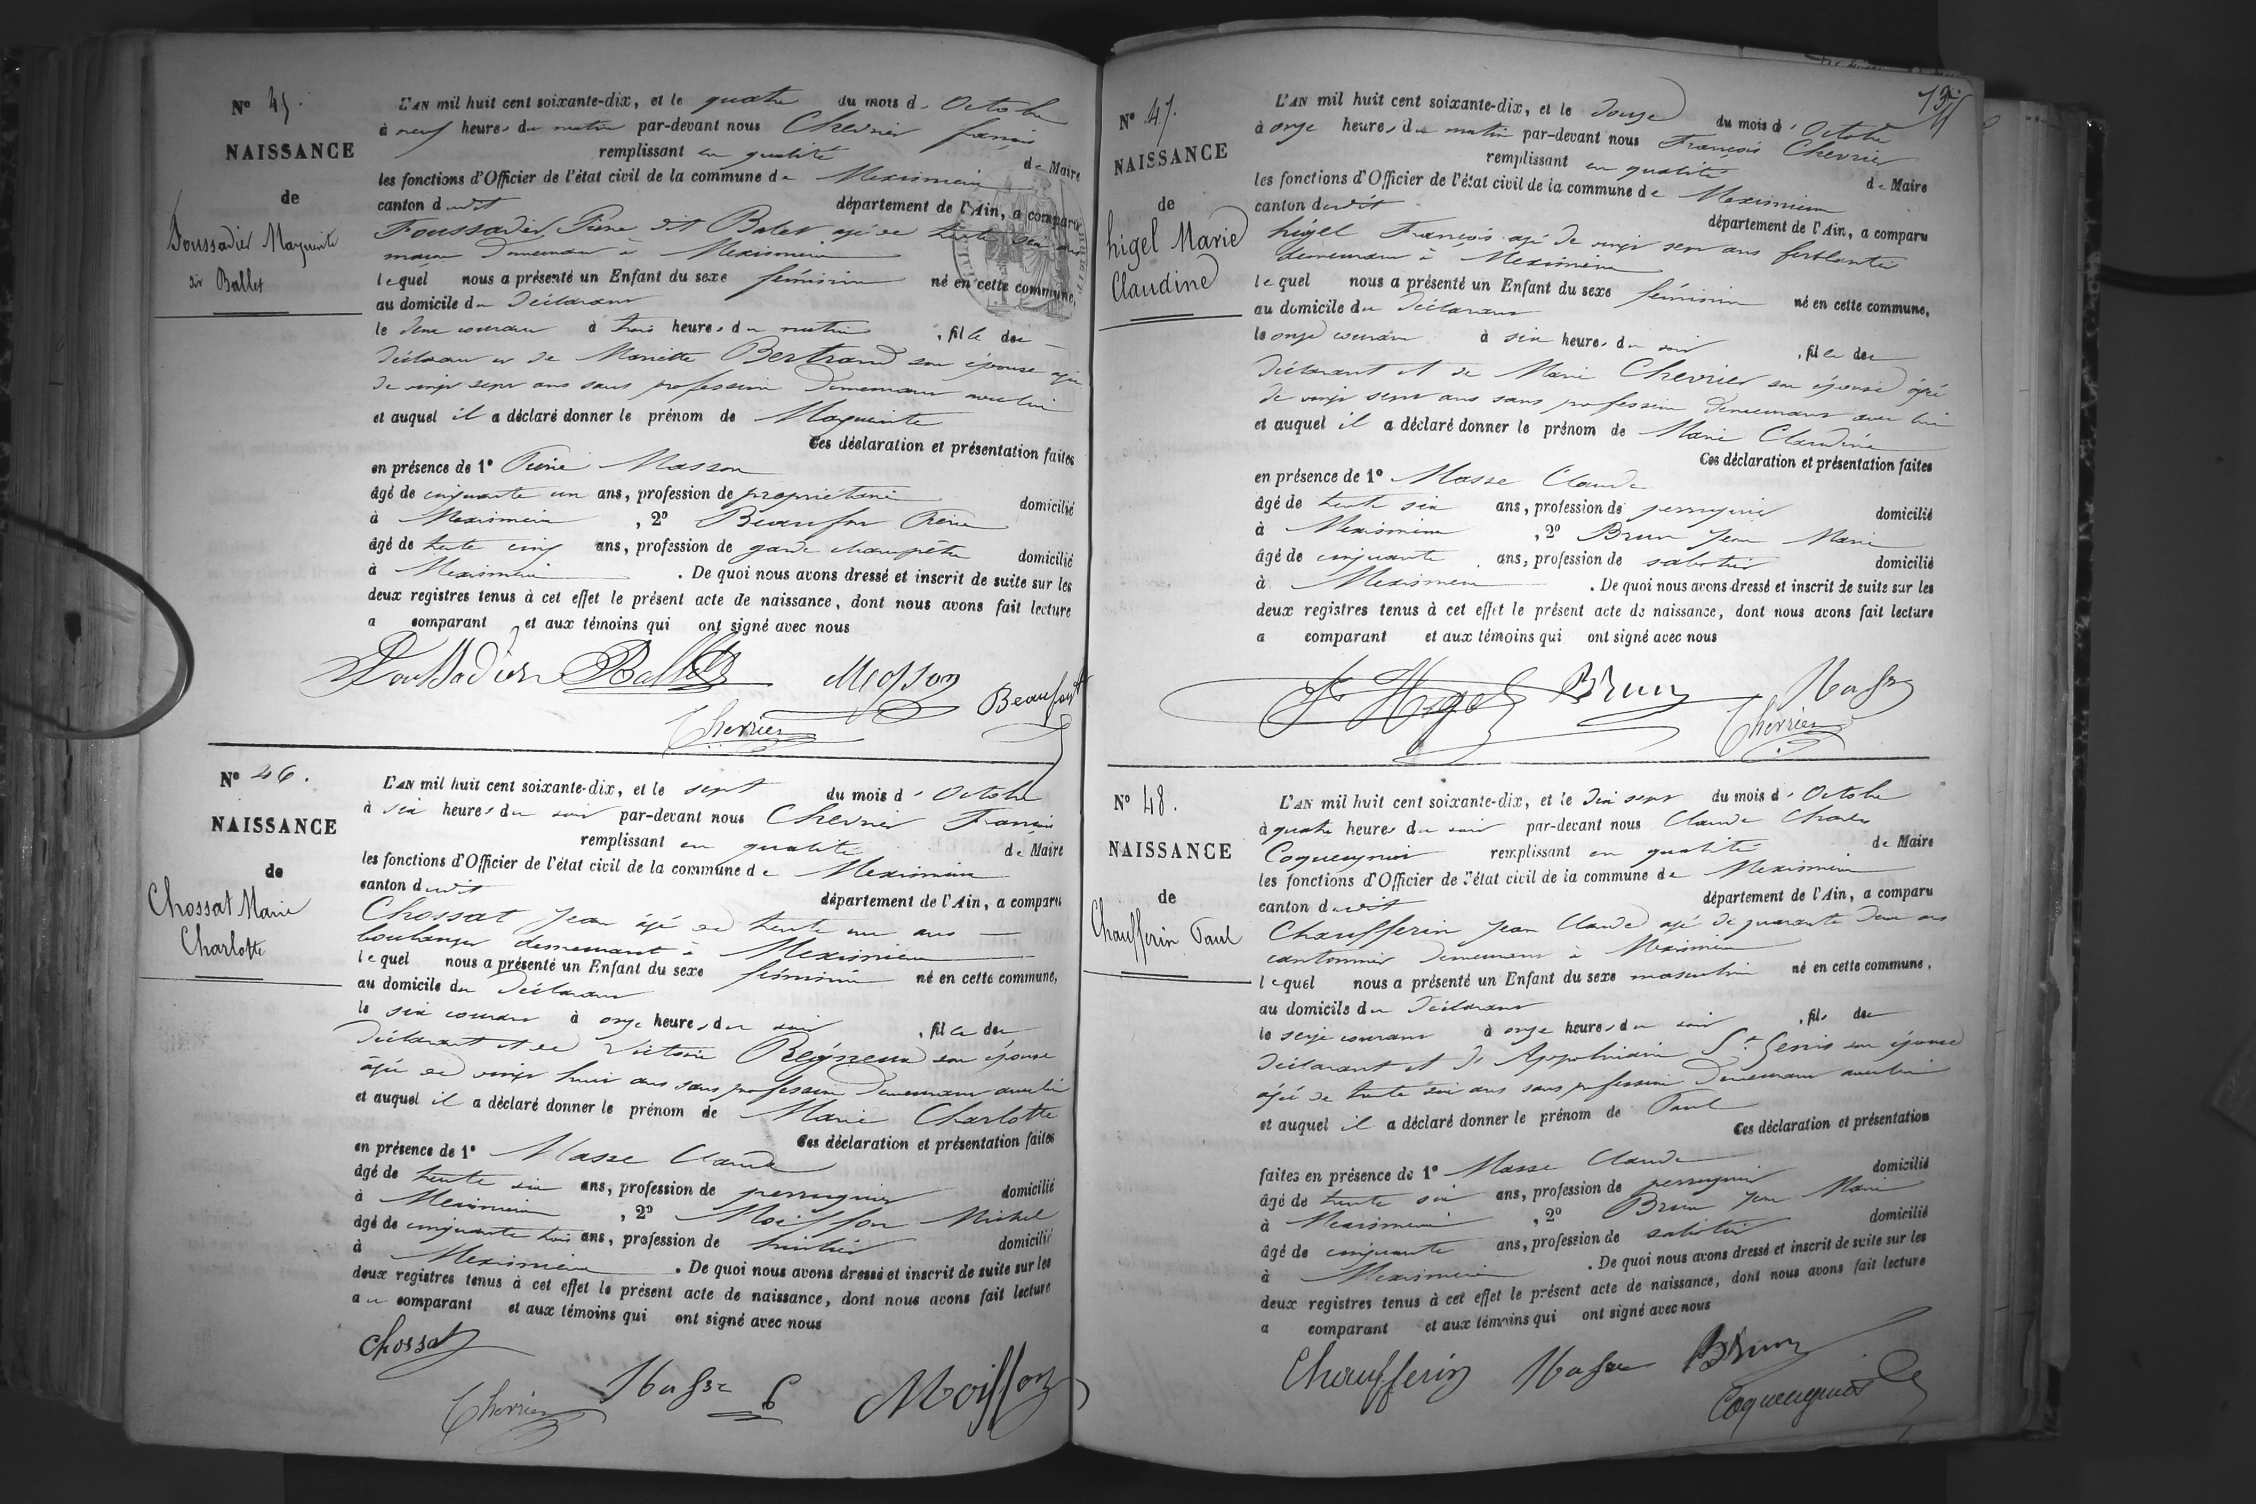 N° 45.
NAISSANCE
de
Foussadier Marguerite
dit Ballet
L'AN mil huit cent soixante-dix, et le quatre du mois d'Octobre
à neuf heures du matin par-devant nous Chevrier françois
remplissant en qualité de Maire
les fonctions d'Officier de l'état civil de la commune de Meximieux
canton dudit département de l'Ain, a comparu
Foussadier Pierre dit Balet agé de trente six ans
maçon demeurant à Meximieux
lequel nous a présenté un Enfant du sexe féminin né en cette commune,
au domicile du déclarant
le deux courant à trois heures du matin, fille du
déclarant et de Mariette Bertrand son épouse agée
de vingt sept ans sans profession demeurant avec lui
et auquel il a déclaré donner le prénom de Marguerite
Ces déclaration et présentation faites
en présence de 1° Pierre Masson
âgé de cinquante un ans, profession de propriétaire domicilié
à Meximieux, 2° Beaufort Pierre
âgé de trente cinq ans, profession de garde champêtre domicilié
à Meximieux. De quoi nous avons dressé et inscrit de suite sur les
deux registres tenus à cet effet le présent acte de naissance, dont nous avons fait lecture
a comparant et aux témoins qui ont signé avec nous
Foussadier Ballet Masson Beaufort
Chevrier
N° 46.
NAISSANCE
de
Chossat Marie
Charlotte
L'AN mil huit cent soixante-dix, et le sept du mois d'Octobre
à six heures du soir par-devant nous Chevrier François
remplissant en qualité de Maire
les fonctions d'Officier de l'état civil de la commune de Meximieux
canton dudit département de l'Ain, a comparu
Chossat Jean âgé de trente un ans
boulanger demeurant à Meximieux
lequel nous a présenté un Enfant du sexe féminin né en cette commune,
au domicile du déclarant
le six courant à onze heures du soir, fille du
déclarant et de Victoire Reigneux son épouse
âgée de vingt huit ans sans profession demeurant avec lui
et auquel il a déclaré donner le prénom de Marie Charlotte
Ces déclaration et présentation faites
en présence de 1° Masse Claude
âgé de trente six ans, profession de perruquier domicilié
à Meximieux, 2° Moisson Michel
âgé de cinquante trois ans, profession de huilier domicilié
à Meximieux. De quoi nous avons dressé et inscrit de suite sur les
deux registres tenus à cet effet le présent acte de naissance, dont nous avons fait lecture
au comparant et aux témoins qui ont signé avec nous
Chossat
Chevrier Masse C Moisson
N° 47.
NAISSANCE
de
higel Marie
Claudine
L'AN mil huit cent soixante-dix, et le douze du mois d'Octobre
à onze heures du matin par-devant nous François Chevrier
remplissant en qualité de Maire
les fonctions d'Officier de l'état civil de la commune de Meximieux
canton dudit département de l'Ain, a comparu
higel François agé de vingt sept ans ferblantier
demeurant à Meximieux
lequel nous a présenté un Enfant du sexe féminin né en cette commune,
au domicile du déclarant
le onze courant à six heures du soir, fille du
déclarant et de Marie Chevrier son épouse âgée
de vingt sept ans sans profession demeurant avec lui
et auquel il a déclaré donner le prénom de Marie Claudine
Ces déclaration et présentation faites
en présence de 1° Masse Claude
âgé de trente six ans, profession de perruquier domicilié
à Meximieux, 2° Brun Jean Marie
âgé de cinquante ans, profession de sabotier domicilié
à Meximieux. De quoi nous avons dressé et inscrit de suite sur les
deux registres tenus à cet effet le présent acte de naissance, dont nous avons fait lecture
a comparant et aux témoins qui ont signé avec nous
Higel Brun Masse
Chevrier
N° 48.
NAISSANCE
de
Chaufferin Paul
L'AN mil huit cent soixante-dix, et le dix sept du mois d'Octobre
à quatre heures du soir par-devant nous Claude Charles
Coqueugniot remplissant en qualité de Maire
les fonctions d'Officier de l'état civil de la commune de Meximieux
canton dudit département de l'Ain, a comparu
Chaufferin Jean Claude agé de quarante deux ans
cantonnier demeurant à Meximieux
lequel nous a présenté un Enfant du sexe masculin né en cette commune,
au domicile du déclarant
le seize courant à onze heures du soir, fils du
déclarant et de St Genis son épouse
agée de trente six ans sans profession demeurant avec lui
et auquel il a déclaré donner le prénom de Paul
Ces déclaration et présentation
faites en présence de 1° Masse Claude domicilié
âgé de trente six ans, profession de perruquier
à Meximieux, 2° Brun Jean Marie
âgé de cinquante ans, profession de sabotier domicilié
à Meximieux. De quoi nous avons dressé et inscrit de suite sur les
deux registres tenus à cet effet le présent acte de naissance, dont nous avons fait lecture
a comparant et aux témoins qui ont signé avec nous
Chaufferin Masse Brun
Coqueugniot